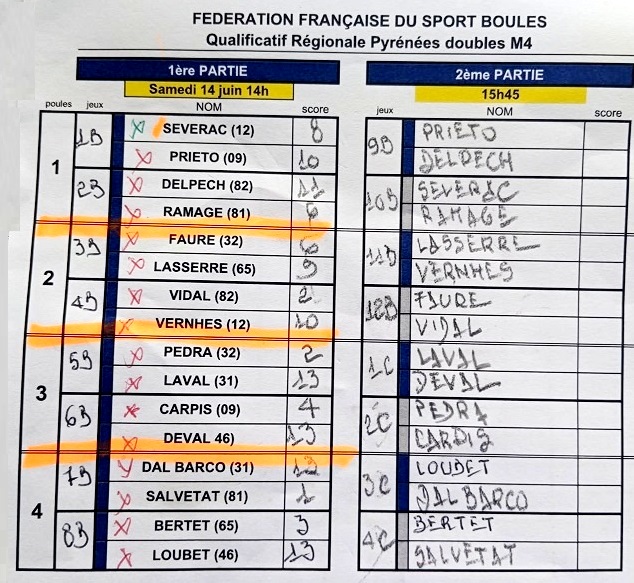 FEDERATION FRANÇAISE DU SPORT BOULES
Qualificatif Régionale Pyrénées doubles M4
1ère PARTIE
Samedi 14 juin 14h
poules jeux NOM score
1 1B SEVERAC (12) 8
PRIETO (09) 10
2B DELPECH (82) 11
RAMAGE (81)
2 3B FAURE (32) 6
LASSERRE (65) 9
4B VIDAL (82) 2
VERNHES (12) 10
3 5B PEDRA (32) 2
LAVAL (31) 13
6B CARPIS (09) 4
DEVAL 46) 13
4 7B DAL BARCO (31)
SALVETAT (81) 1
8B BERTET (65) 3
LOUBET (46) 13
2ème PARTIE
15h45
jeux NOM score
9B PRIETO
DELPECH
10B SEVERAC
RAMAGE
11B LASSERRE
VERNHES
12B FAURE
VIDAL
1C LAVAL
DEVAL
2C PEDRA
CARPIS
3C LOUBET
DAL BARCO
4C BERTET
SALVETAT